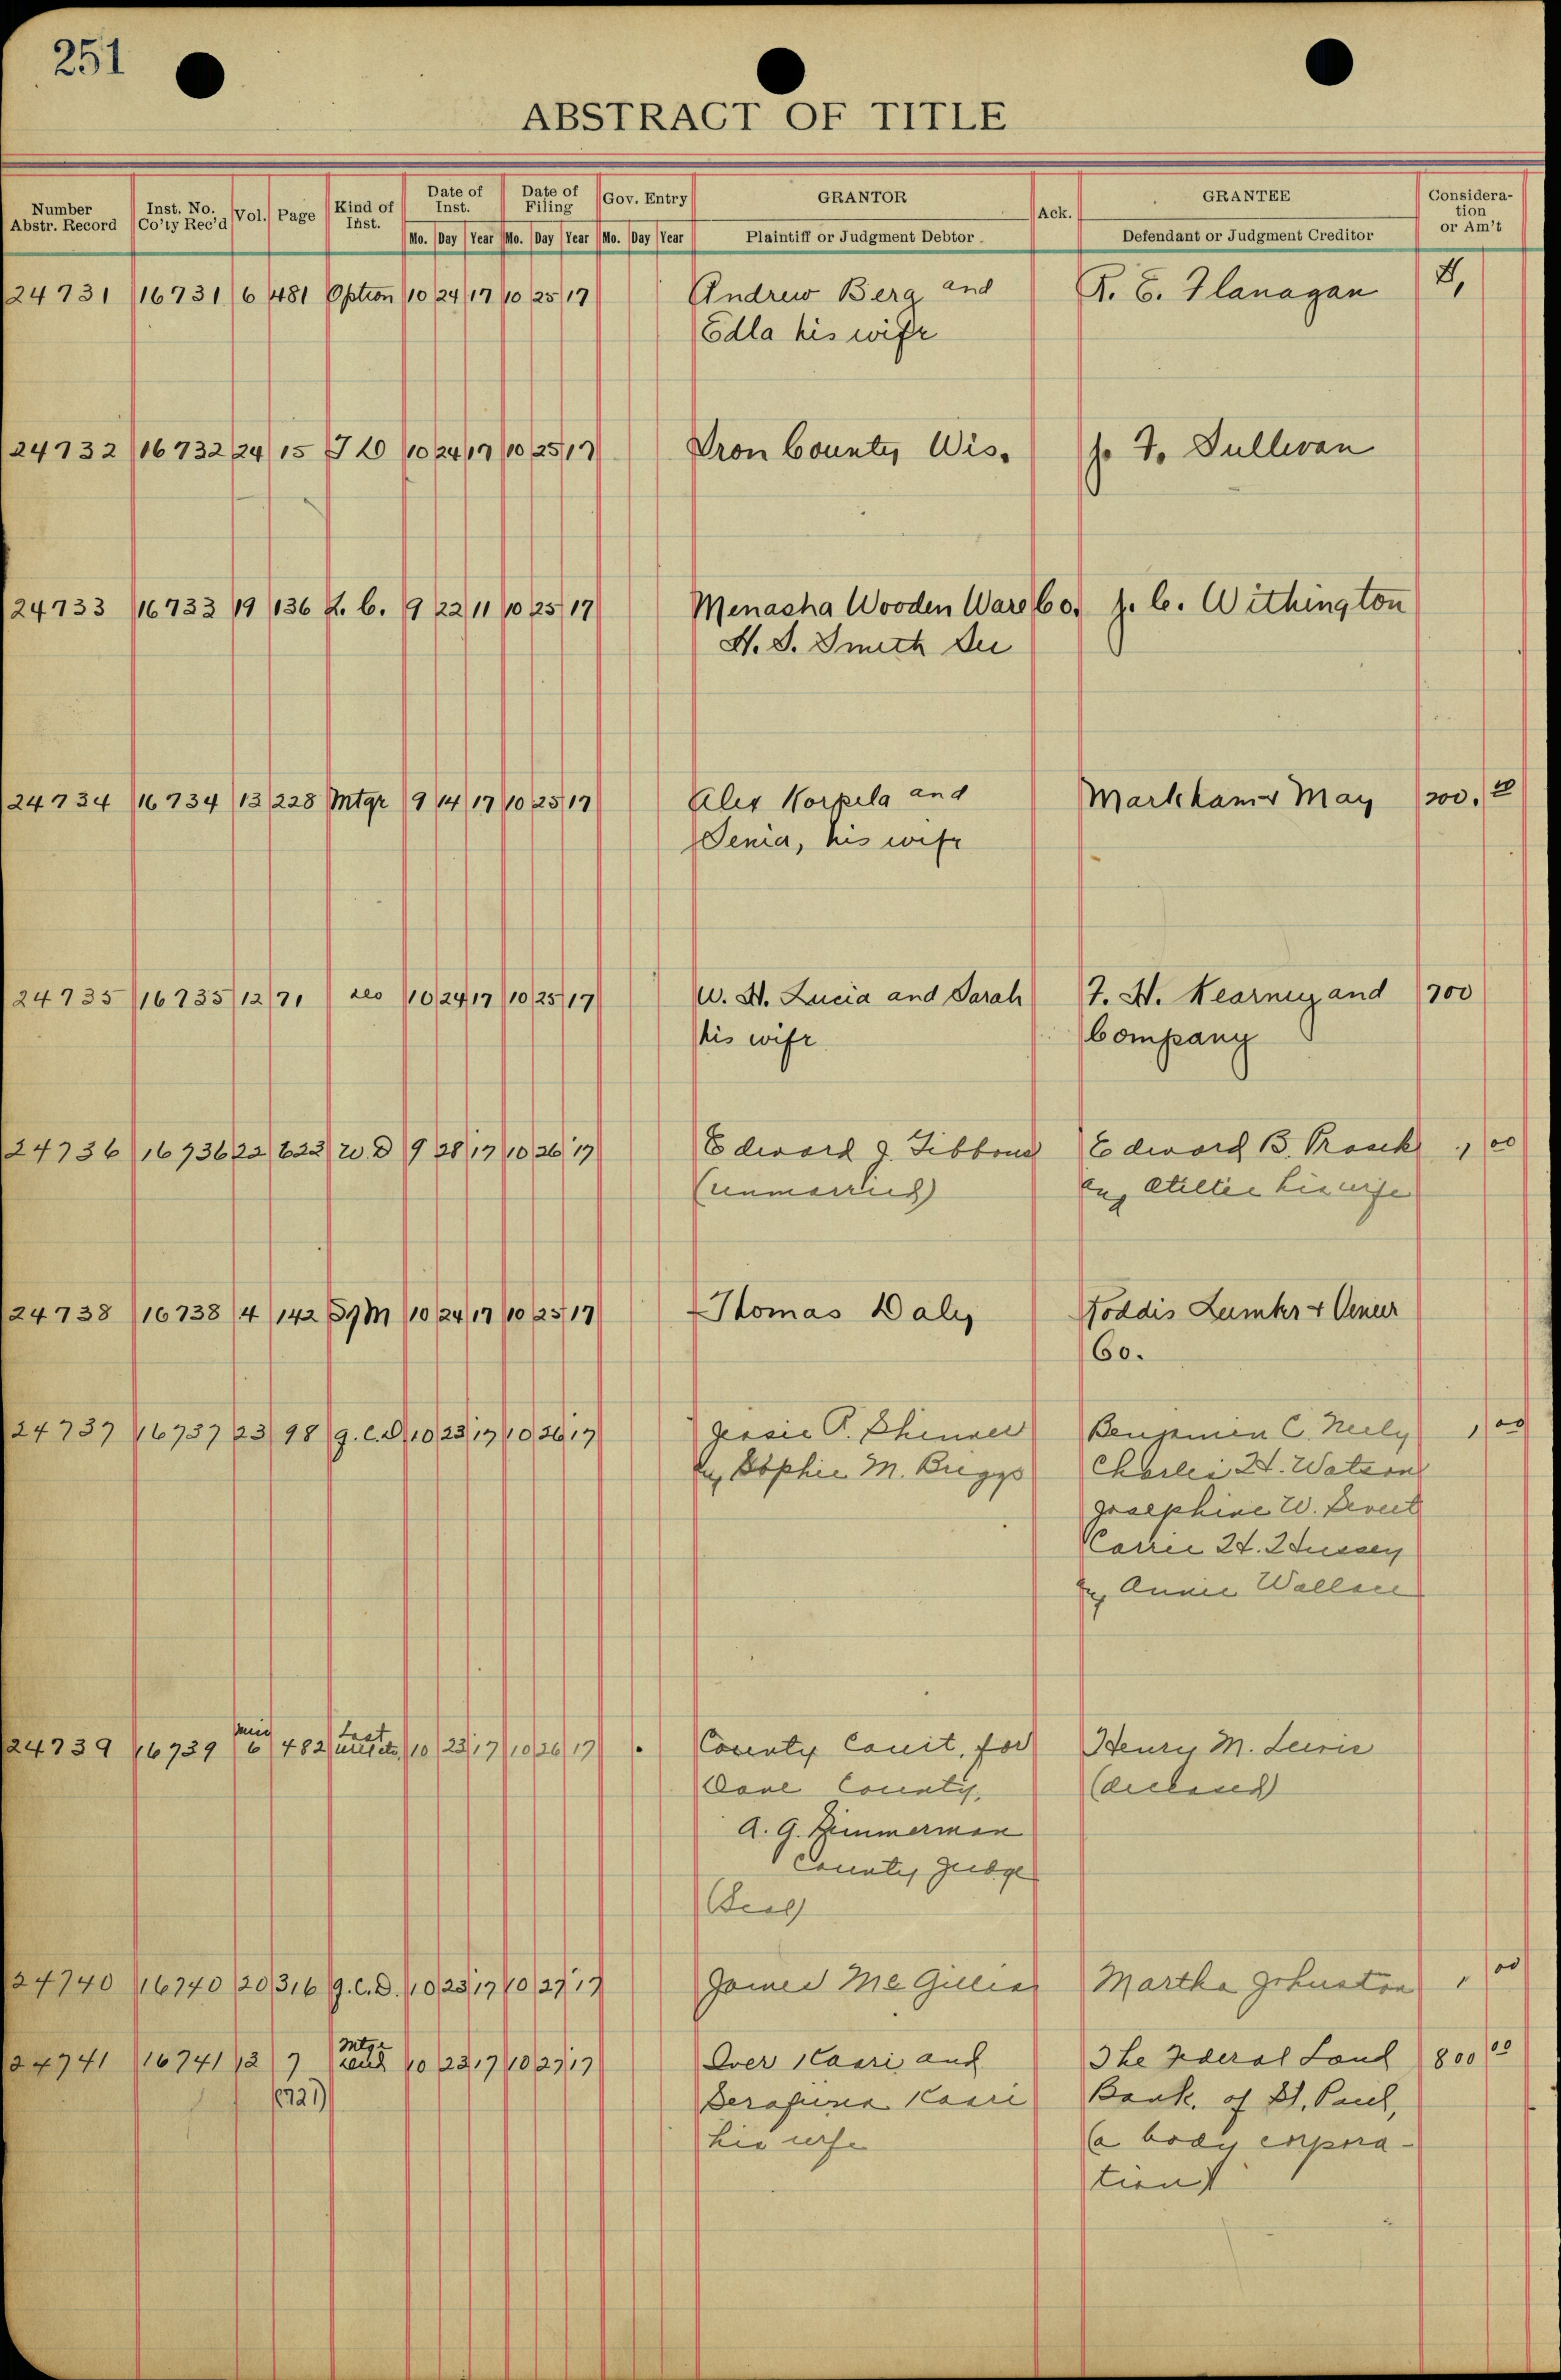 251
ABSTRACT OF TITLE
Number Abstr. Record Inst. No. Co'ty Rec'd Vol. Page Kind of Inst. Date of Inst. Date of Filing Gov. Entry GRANTOR Ack. GRANTEE Consideration or Am't
Mo. Day Year Mo. Day Year Mo. Day Year Plaintiff or Judgment Debtor Defendant or Judgment Creditor
24731 16731 6 481 Option 10 24 17 10 25 17 Andrew Berg and R. E. Flanagan
Edla his wife
24732 16732 24 15 10 24 17 10 25 17 Iron County Wis. J. F. Sullivan
24733 16733 19 136 L. C. 9 22 11 10 25 17 Menasha Wooden Ware Co. J. C. Withington
H. S. Smith
24734 16734 13 228 Mtge 9 14 17 10 25 17 Alex Korpela and Markham & May
Senia, his wife
24735 16735 12 71 10 24 17 10 25 17 W. H. Lucia and Sarah F. H. Kearney and 700
his wife Company
24736 16736 22 622 W. D 9 28 17 10 26 17 Edward J. Gibbons Edward B. 1 00
(unmarried) his wife
24738 16738 4 142 10 24 17 10 25 17 Thomas Daly Lumber & Veneer
Co.
24737 16737 23 98 Q. C. D 10 23 17 10 26 17 Jessie P. Benjamin C. Neely 1 00
Sophie M. Briggs Charles H. Watson
Josephine W.
Carrie H. Hussey
Annie
24739 16739 6 482 Last 10 23 17 10 26 17 County Court, for Henry M. Lewis
Dane County, (deceased)
A. G. Zimmerman
County Judge
(Seal)
24740 16740 20 316 Q. C. D. 10 23 17 10 27 17 James Mc Martha Johnston 1 00
24741 16741 12 7 Mtge 10 23 17 10 27 17 Kaari and The Federal Land 800 00
(721) Kaari Bank of St. Paul,
his wife (a body corpora-
tion)